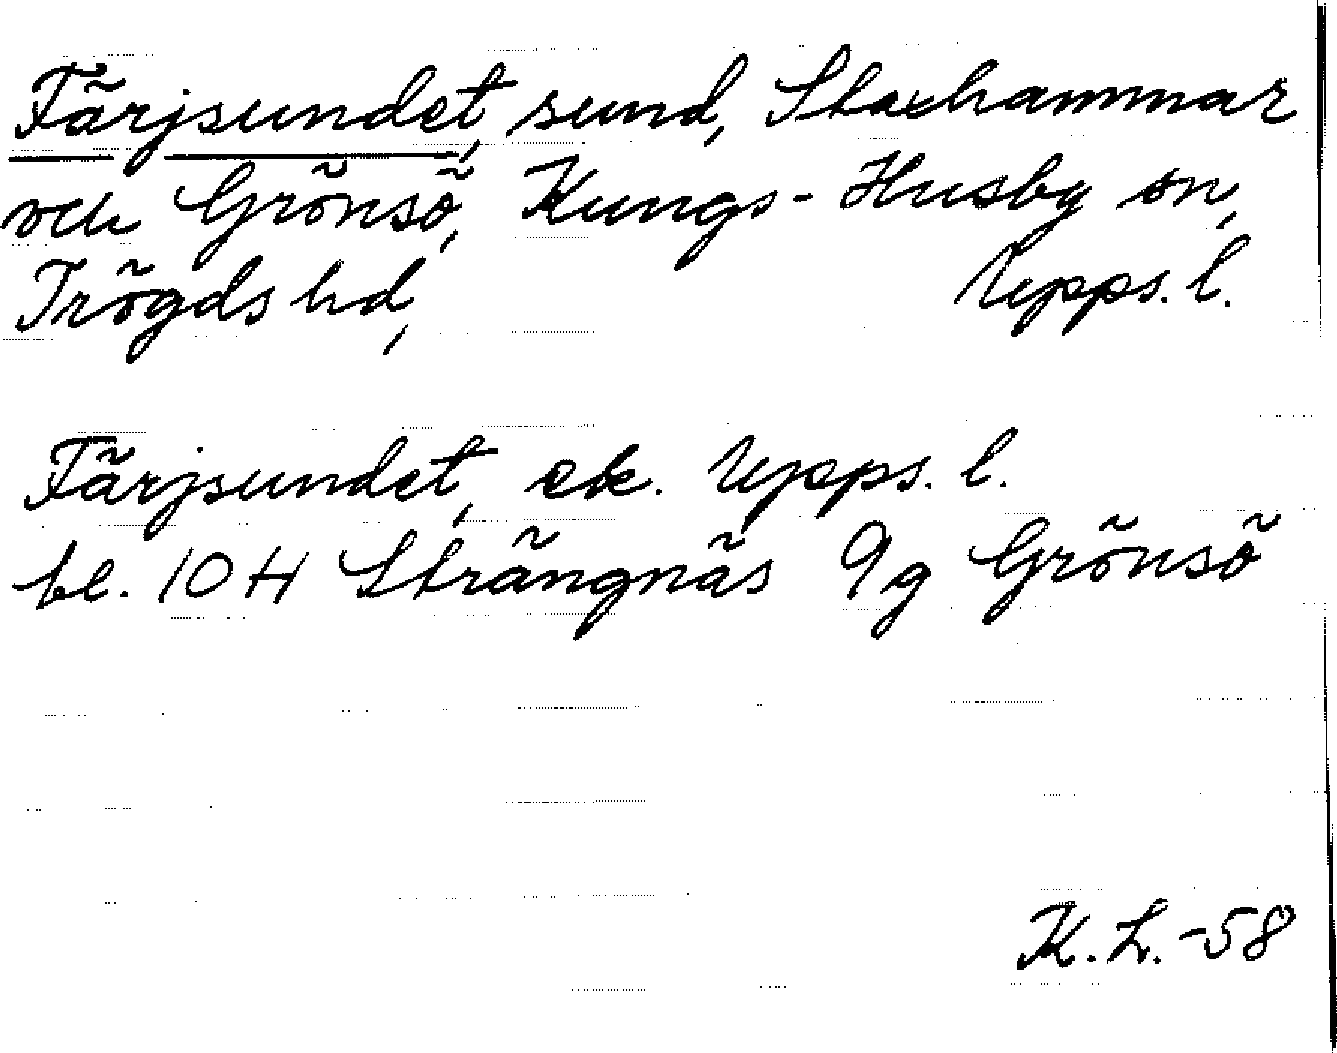 Färjsundet, sund, Slaxhammar
och Grönsö, Kungs-Husby sn,
Trögds hd, Upps. l.
Färjsundet, ek. Upps. l.
bl. 10 H Strängnäs 9g Grönsö
K.L.-58